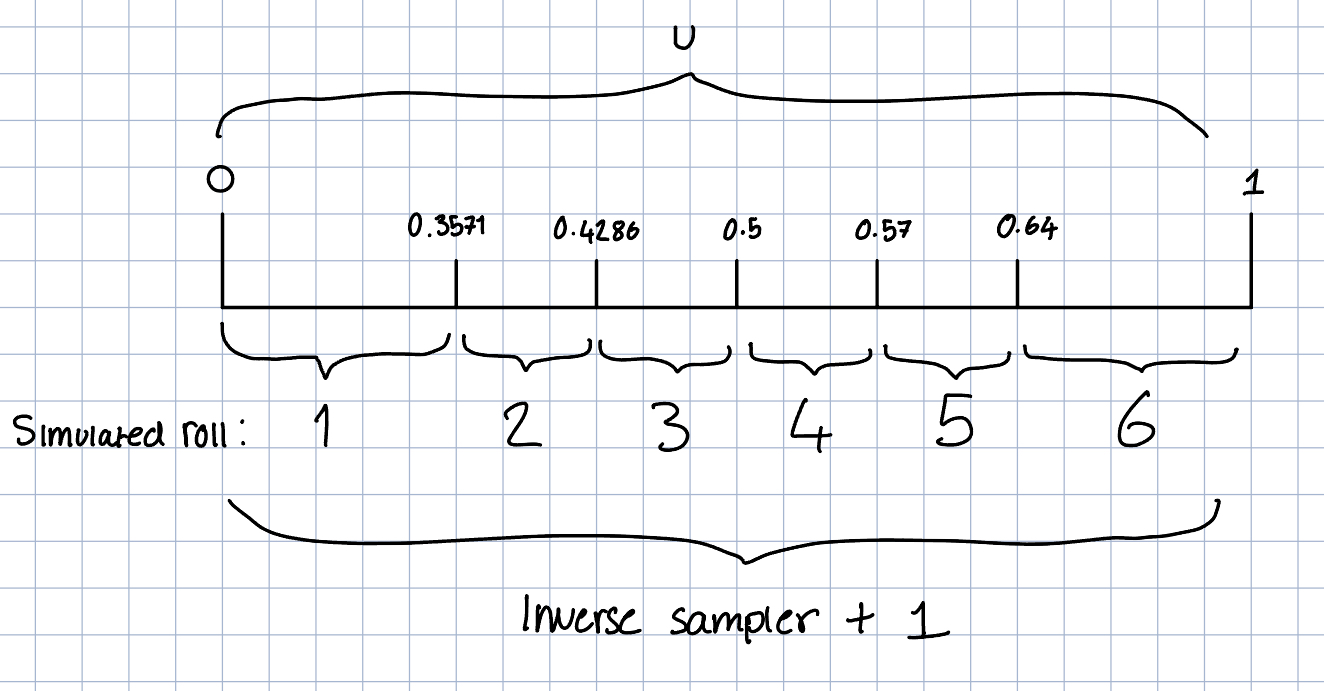 U
0 1
0.3571 0.4286 0.5 0.57 0.64
Simulated roll: 1 2 3 4 5 6
Inverse sampler + 1